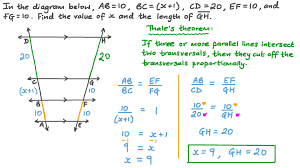 In the diagram below, AB=10, BC=(x+1), CD=20, EF=10, and
FG=10. Find the value of x and the length of GH.
Thale's theorem:
If three or more parallel lines intersect
two transversals, then they cut off the
transversals proportionally.
D H
20 20
C G
(x+1) 10
B F
10 10
A E
AB/BC = EF/FG
10/(x+1) = 1
10 = x+1
-1 -1
9 = x
x = 9
AB/CD = EF/GH
10/20 = 10/GH
GH = 20
x = 9, GH = 20